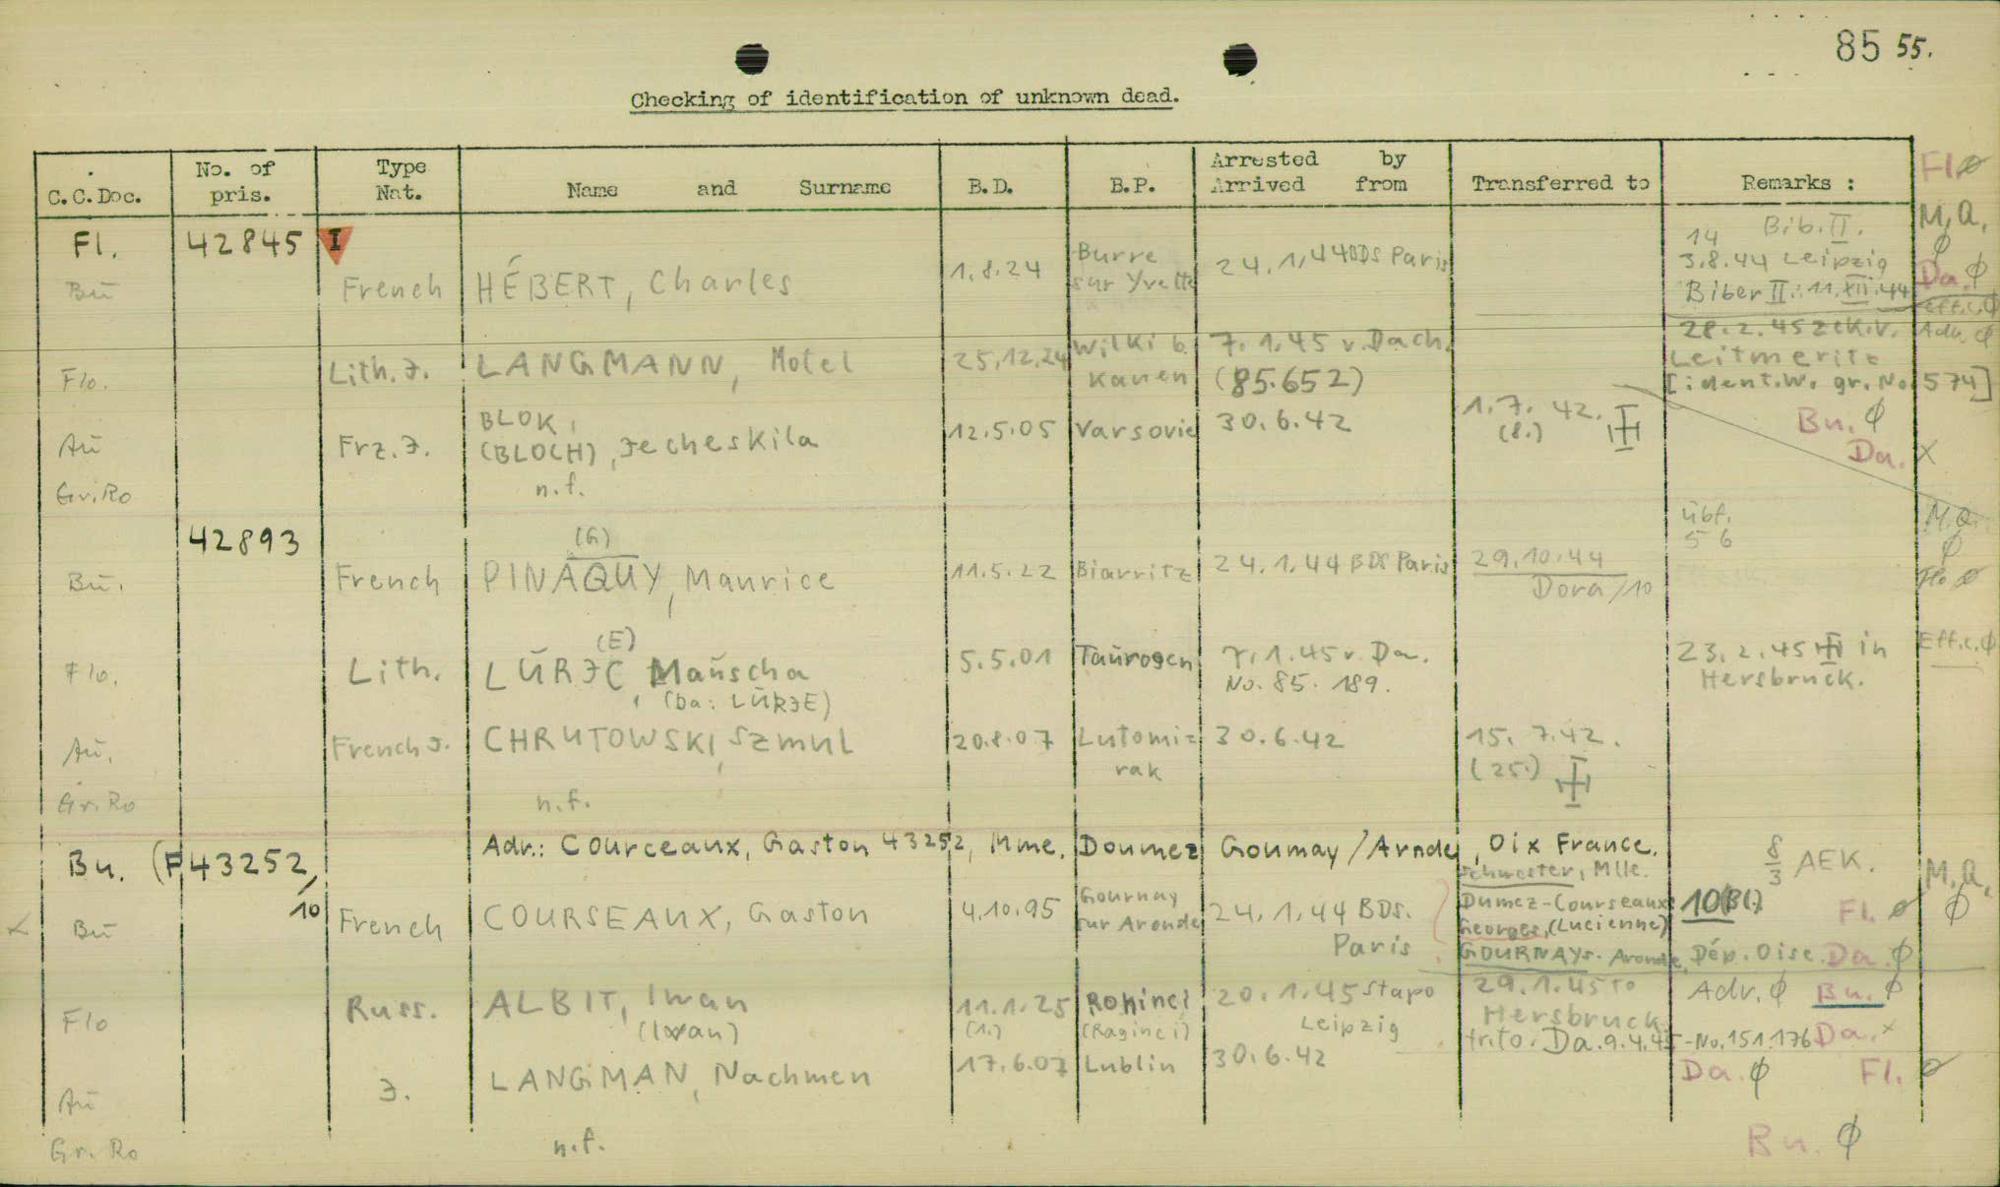 85 55.
Checking of identification of unknown dead.
C.C.Doc. No. of pris. Type Nat. Name and Surname B.D. B.P. Arrested by Arrived from Transferred to Remarks : Fl. ø
M.Q. ø
Fl. 42845 I 14 Bib. II.
Bu French HÉBERT, Charles 1.8.24 Burre sur Yvette 24.1.44 BDS Paris 3.8.44 Leipzig Da. ø
Biber II.: 11.XII.44 Eff.c. ø
28.2.45 zck.v. Adr. ø
Flo. Lith. J. LANGMANN, Motel 25.12.24 Wilki b. Kauen 7.1.45 v. Dach. (85.652) Leitmeritz
[ident.W. gr. No 574]
Au Frz. J. BLOK, (BLOCH), Jecheskila 12.5.05 Varsovie 30.6.42 1.7.42. (8.) Bu. ø
Da. x
Gr.Ro n.f.
42893 (G) übf. 56 M.Q. ø
Bu. French PINAQUY, Maurice 11.5.22 Biarritz 24.1.44 BDS Paris 29.10.44 Dora/10 Flo ø
(E)
Flo. Lith. LŪRJC, Mauscha 5.5.01 Taurogen 7.1.45 v. Da. 23.2.45 in Hersbruck. Eff.c. ø
(Da: LŪRJE) No. 85.189.
Au. French J. CHRUTOWSKI, Szmul 20.8.07 Lutomiz rak 30.6.42 15.7.42. (25.)
Gr.Ro n.f.
Bu. (F 43252, Adr.: Courceaux, Gaston 43252, Mme. Doumez Goumay/Arnde, Oix France. 8/3 AEK. M.Q. ø
/10 Schwester, Mlle.
Bu French COURSEAUX, Gaston 4.10.95 Gournay sur Aronde 24.1.44 BDS. Paris Dumez-Courseaux 10(Bl.) Fl. ø
Georges, (Lucienne)
GOURNAY s. Aronde, Dép. Oise. Da. ø
Flo Russ. ALBIT, Iwan 11.1.25 Roninci 20.1.45 Stapo Leipzig 29.1.45 to Hersbruck Adr. ø Bu. ø
(Iwan) (1.) (Raginci) trto. Da. 9.4.45 -No. 151.176 Da. x
Au J. LANGMAN, Nachmen 17.6.07 Lublin 30.6.42 Da. ø Fl. ø
Gr. Ro n.f. Bu. ø